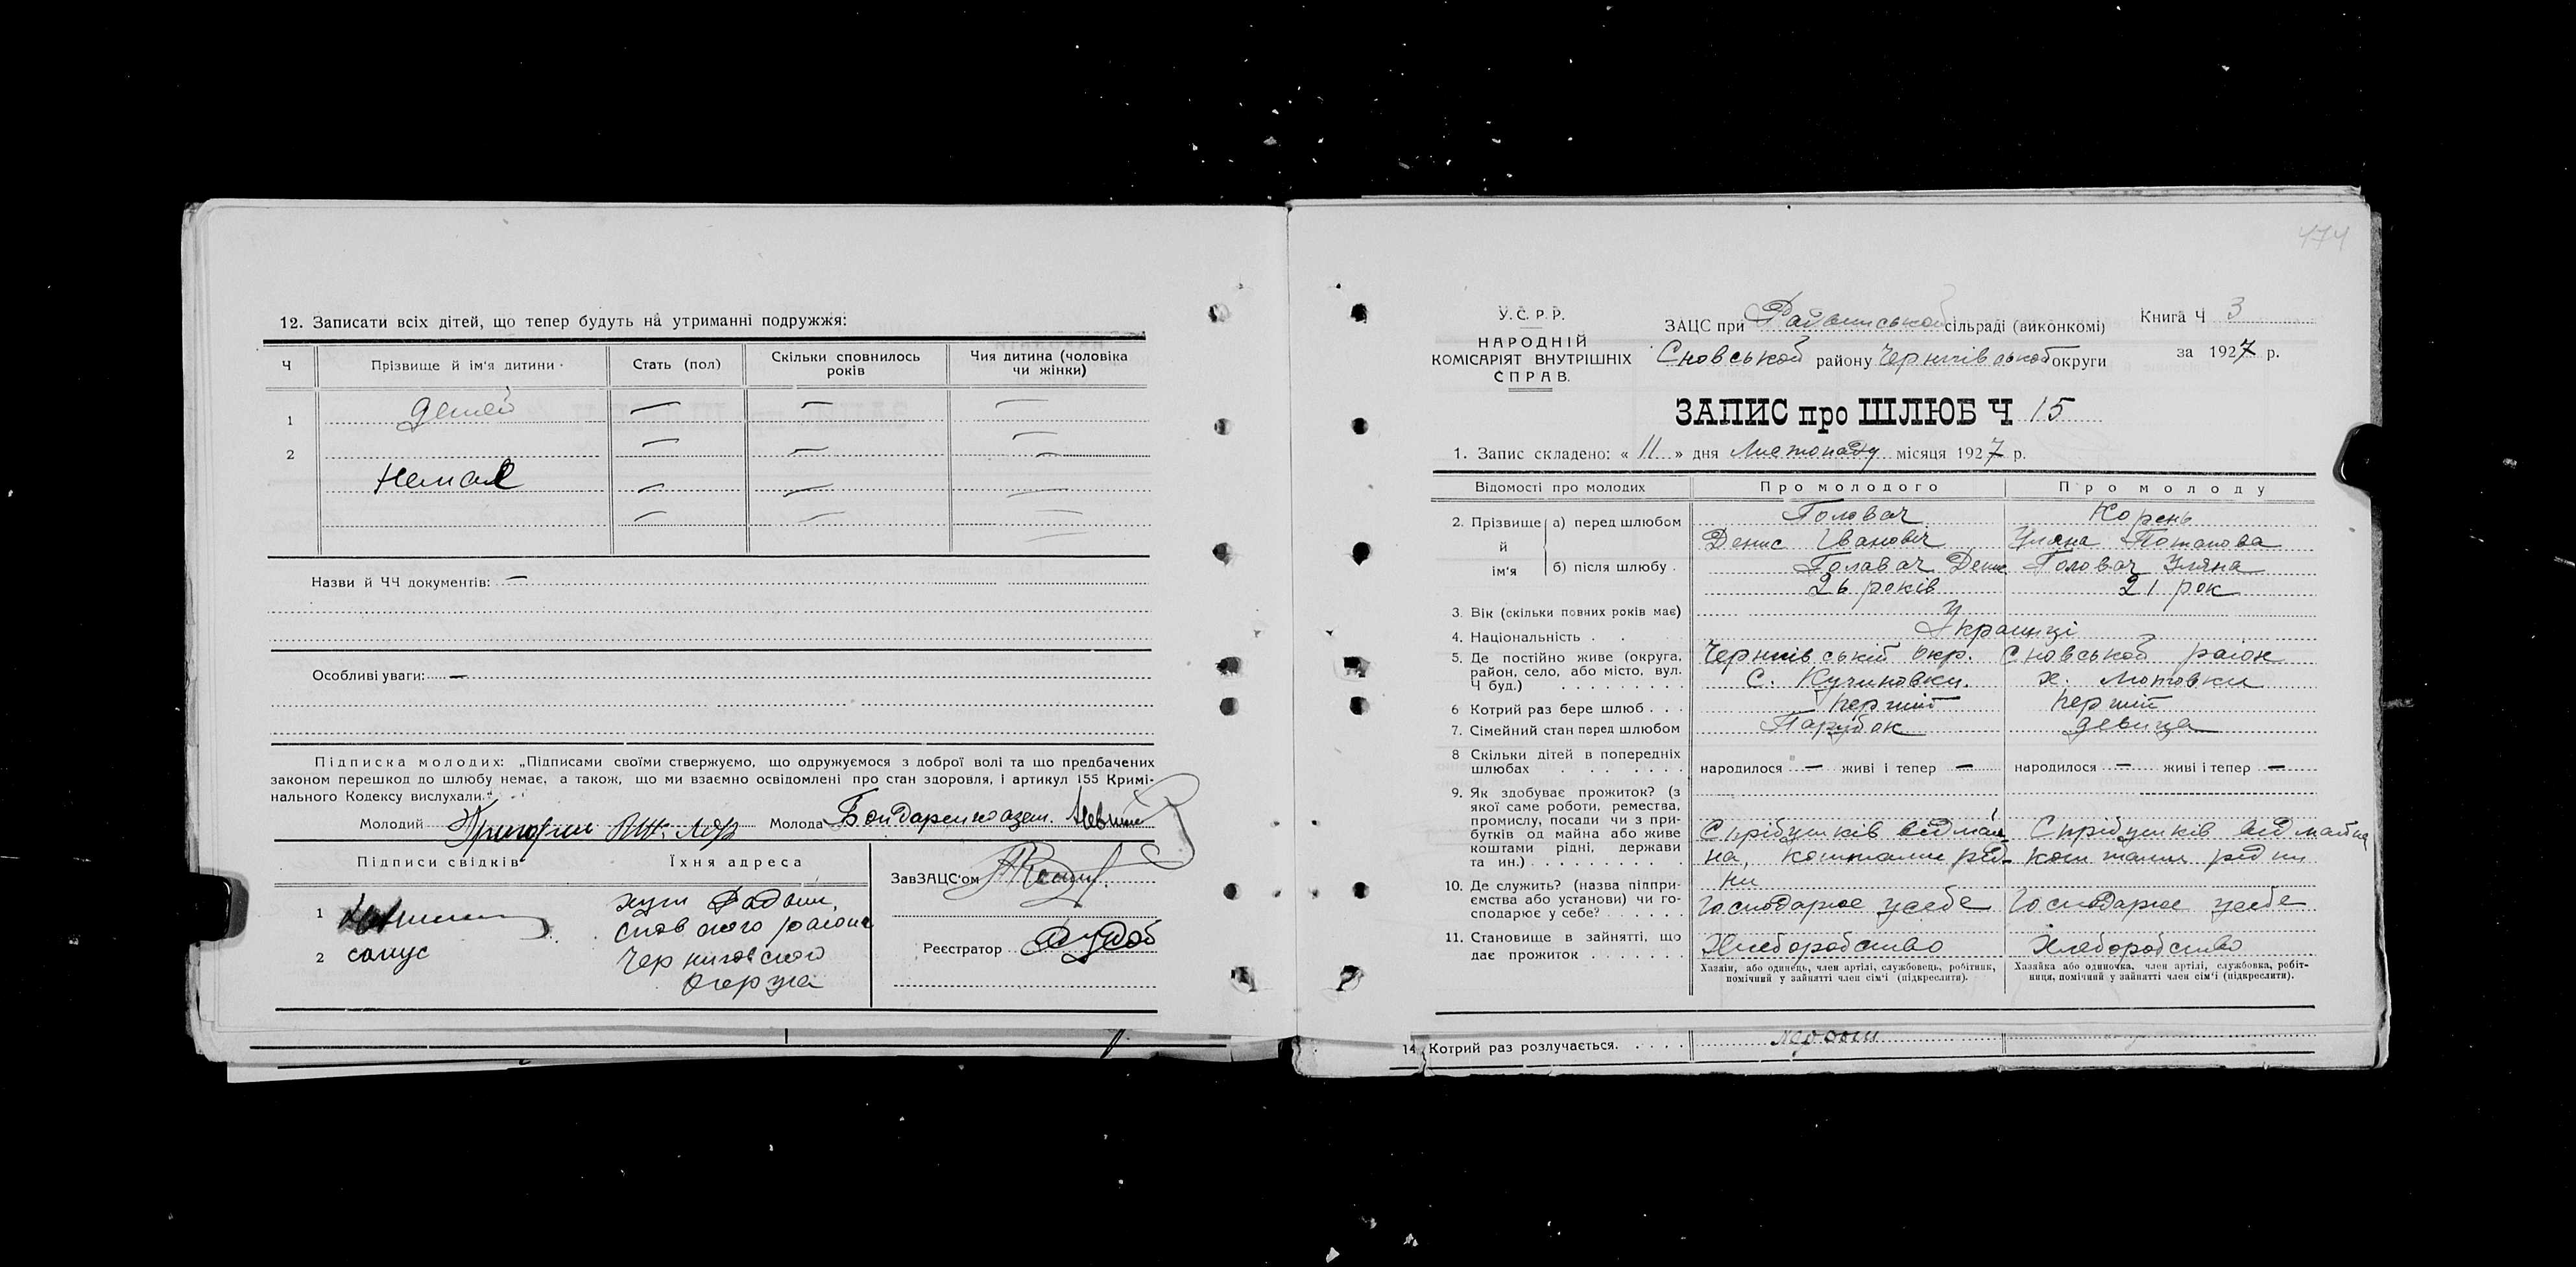 12. Записати всіх дітей, що тепер будуть на утриманні подружжя:
Ч Прізвище й ім'я дитини Стать (пол) Скільки сповнилось років Чия дитина (чоловіка чи жінки)
1 детей — — —
2 — — —
Немає — — —
— — —
Назви й ЧЧ документів: —
Особливі уваги: —
Підписка молодих: „Підписами своїми ствержуємо, що одружуємося з доброї волі та що предбачених
законом перешкод до шлюбу немає, а також, що ми взаємно освідомлені про стан здоровля, і артикул 155 Кримі-
нального Кодексу вислухали."
Молодий Молода Бондаренко
Підписи свідків Їхня адреса
ЗавЗАЦС'ом
1 хут
сновского района
2 Черниговского
округа
Реєстратор
474
У.С.Р.Р.
НАРОДНІЙ
КОМІСАРІЯТ ВНУТРІШНІХ
СПРАВ.
ЗАЦС при сільраді (виконкомі)
Сновськой району Чернигівськой округи
Книга Ч 3
за 1927 р.
ЗАПИС про ШЛЮБ Ч 15
1. Запис складено: « 11 » дня Листопаду місяця 1927 р.
Відомості про молодих Про молодого Про молоду
2. Прізвище й ім'я а) перед шлюбом Головач Корень
Денис Іванович Уляна Потапова
б) після шлюбу Головач Денис Головач Уляна
3. Вік (скільки повних років має) 26 років 21 рок
4. Національність Украинці
5. Де постійно живе (округа, Чернигівській Окр. Сновськой район
район, село, або місто, вул. С. Кучиновки х.
Ч буд.)
6 Котрий раз бере шлюб перший перший
7. Сімейний стан перед шлюбом Парубок девица
8 Скільки дітей в попередніх
шлюбах народилося — живі і тепер — народилося — живі і тепер —
9. Як здобуває прожиток? (з
якої саме роботи, ремества,
промислу, посади чи з при-
бутків од майна або живе С прібутків від май С прібутків від майна
коштами рідні, держави
та ин.) на, коштами рід- коштами рідни
ни
10. Де служить? (назва підпри-
ємства або установи) чи го-
сподарює у себе? Господарює усебе Господарює усебе
11. Становище в зайнятті, що
дає прожиток Хлеборобство Хлеборобство
Хазяїн, або одинець, член артілі, службовець, робітник,
помічний у зайнятті член сім'ї (підкреслити).
Хазяйка або одиночка, член артілі, службовка, робіт-
ниця, помічний у зайнятті член сім'ї (підкреслити).
14 Котрий раз розлучається.